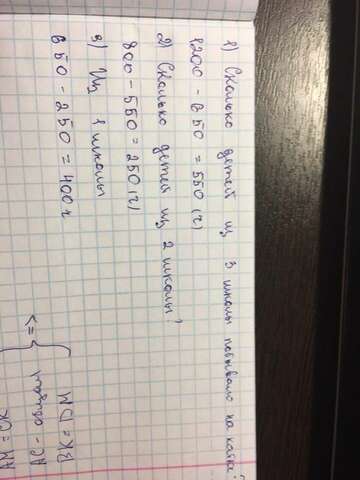 1) Сколько детей из 3 школы побывало на катке?
1200 - 650 = 550 (ч)
2) Сколько детей из 2 школы?
800 - 550 = 250 (ч)
3) Из 1 школы
650 - 250 = 400 ч
AC - общая
<= {
AM = CK